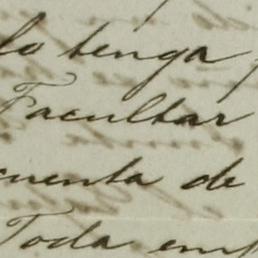 lo tenga
Facultar
cuenta de
Toda emp